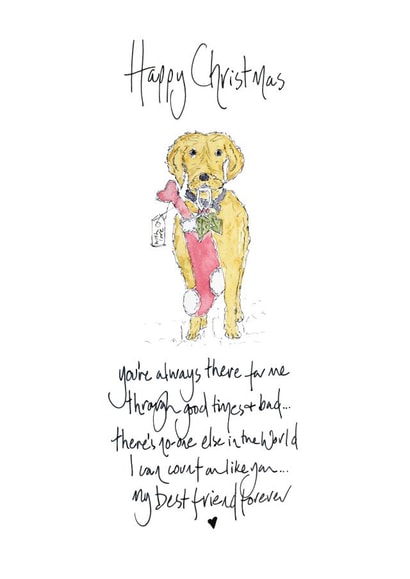 Happy Christmas
with love
you're always there for me
through good times + bad...
there's no-one else in the world
I can count on like you...
my best friend forever